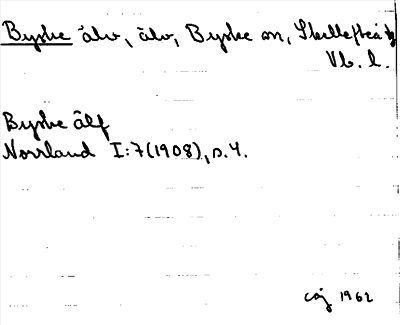 Byske älv, älv, Byske sn, Skellefteå tg
Vb. l.
Byske älf
Norrland I:7(1908), s.4.
CGJ 1962